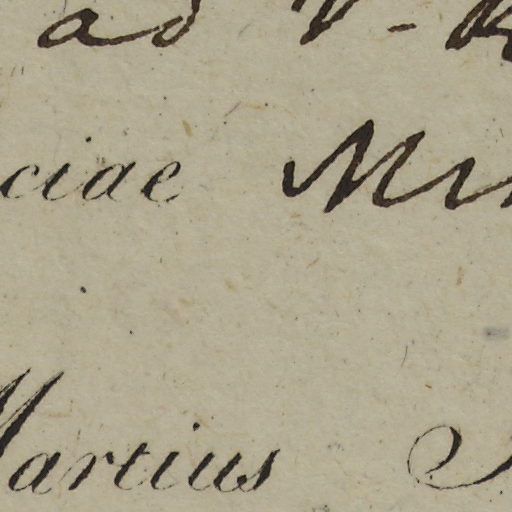 ad V-
ciae
Martius